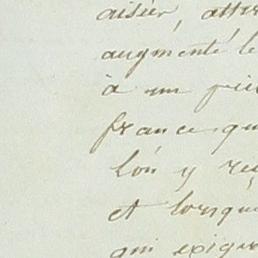 aisier, attir
augmenté le
à un pri
france, qu
lón y re
et lorsque
qui exige